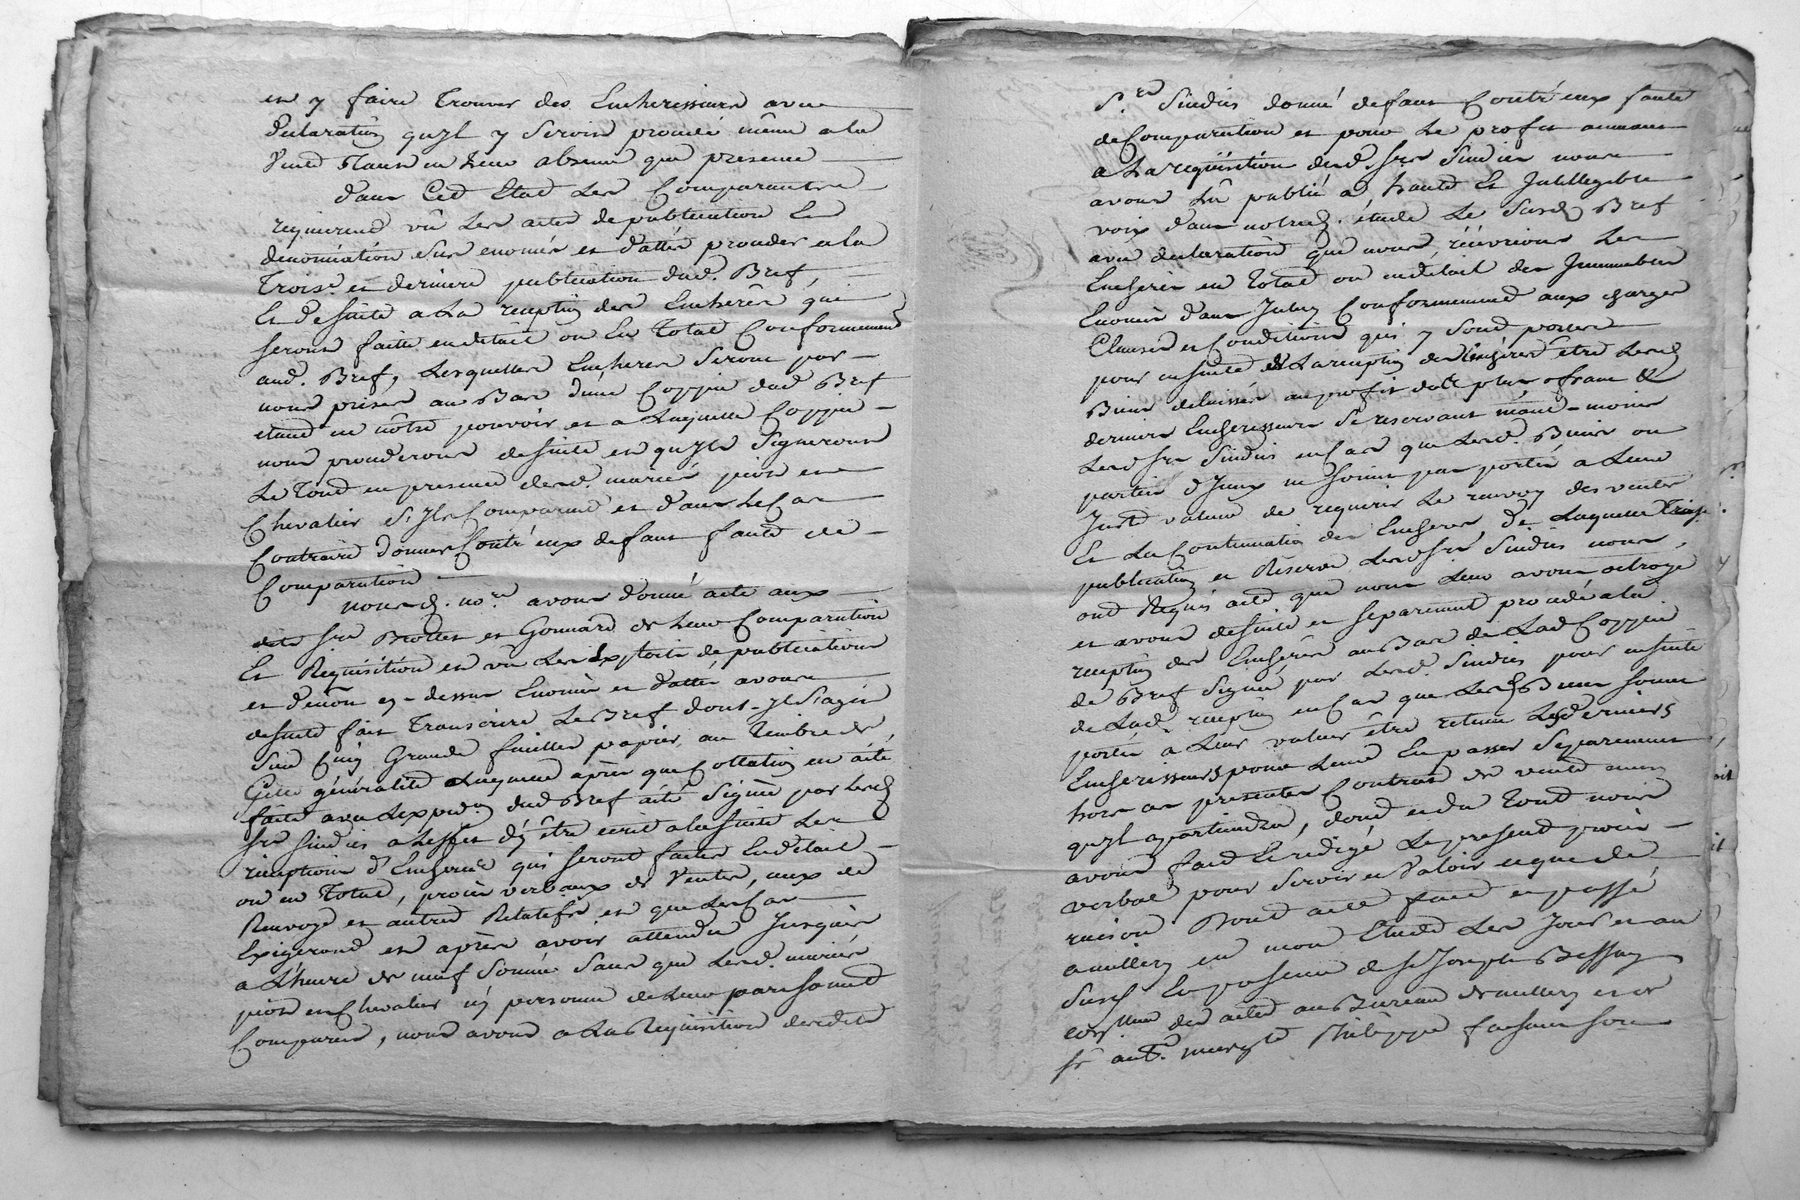 et y faire trouver des Encherisseurs avec
declaration quyl y seroit procédé même a la
vente tant en leur absence que presence
dans Cet Etat Les Comparants
requierent vû Les actes de publication Et
denonciation sus enoncés et dattés proceder a la
Trois.e et derniere publication dud. Bref,
Et desuite a La reception des Encheres qui
seront faittes en détail ou En Total Conformement
aud. Bref, Lesquelles Encheres seront par
nous prises au Bas d'une Coppie dud Bref
etant en nôtre pouvoir et a Laquelle Coppie
nous procederons desuite et quyls signeront
Le Tout en presence desd. mariés piot et
Chevalier s'yls Comparent et dans Le Cas
Contraire donner Contr'eux defaut faute de
Comparution
nous d. no.re avons donné acte aux
dits srs Brottet et Gonnard de Leur Comparution
Et Requisition et vû Les Exploits de publications
et denon cy-dessus Enoncés et dattés avons
desuite fait Transcrire Le Bref dont-yl s'agit
sur Cinq Grandes feuilles papier au Timbre de
Cette généralité Laquelle après que Collation en a été
faite avec Lexped.on dud Bref a été signée par Lesd
srs sindics a Leffet d'y être ecrit a la suite Les
réceptions d'Encheres qui seront faites En détail
ou en Total, procès verbaux de ventes, aux de
Renvoye et autres Relatifs et que Le Cas
Exigeront et après avoir attendu Jusques
a L'heure de neuf sonnée sans que Lesd. mariés
piot et Chevalier ny personne de Leur part soient
Comparus, nous avons a La Requisition desdits
S.rs Sindics donné defaut Contr'eux faute
de Comparution et pour Le profit
a La requisition desd. srs Sindics nous
avons Lû publié a haute Et Intelligible
voix dans notred. étude Le susd Bref
avec declaration que nous recevrions Les
Encheres en Total ou en détail des Immeubles
Enoncés dans Iceluy Conformement aux charges
Clauses et Conditions qui y sont portées
pour ensuite de La reception des encheres être Lesd
Biens delaissés au profit du plus offrant &
derniers Encherisseurs se reservant néant-moins
Lesd srs Sindics en Cas que Lesd. Biens ou
partie d'Iceux ne soient pas portés a Leur
Juste valeur de requerir Le renvoy des ventes
Et La Continuation des Encheres De Laquelle Troise
publication et Réserve Lesd srs Sindics nous
ont Requis acte que nous Leur avons octroyé
et avons desuite et separement procédé a la
reception des Encheres au Bas de Lad Coppie
de Bref signé par Lesd. Sindics pour ensuite
de Lad. reception en Cas que Lesd Biens soient
portés à Leur valeur être retenu Lesd derniers
Encherisseurs pour Leur En passer separement
hors au presentes Contrat de vente ainsy
quyl apartiendra, dont et du Tout nous
avons fait Et redigé Le present procès
verbal pour servir et valoir ce que de
raison Dont acte fait et passé
a millery en mon Etude Les Jour et an
susd En presence de sr Joseph Bessay
Com.mis des actes au Bureau de millery et de
sr ant.e Philippe faisant son